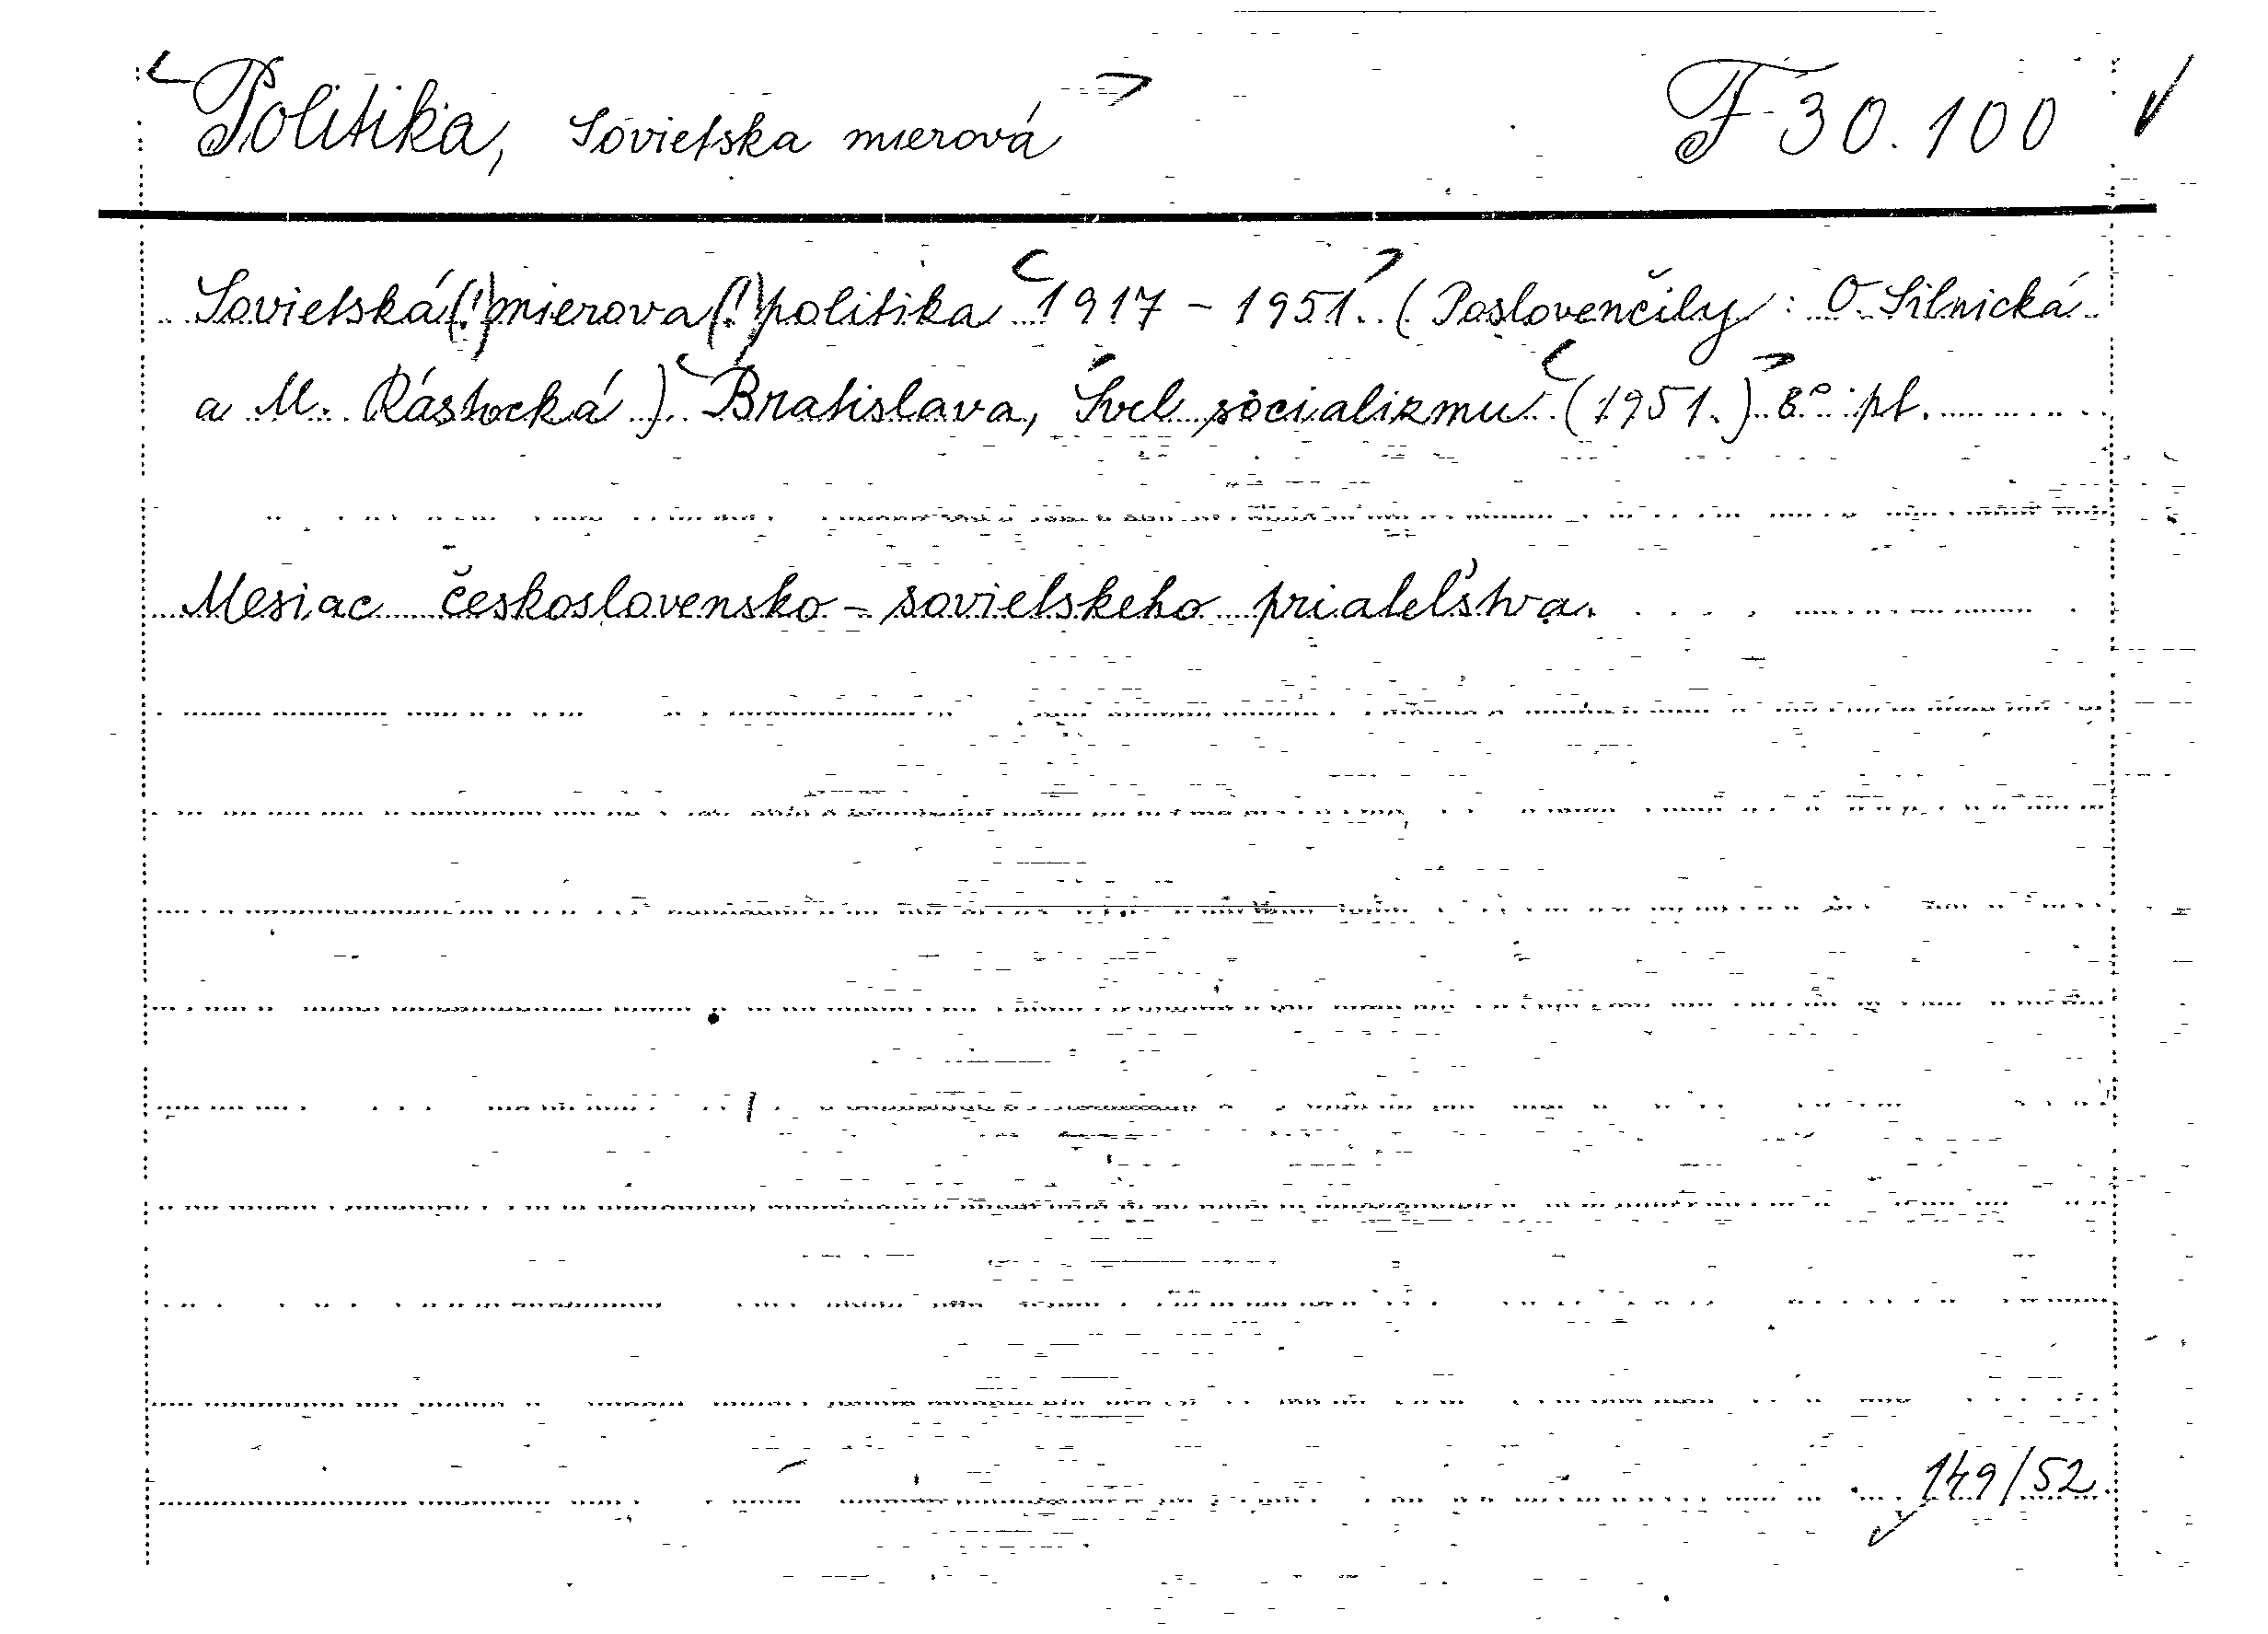 Politika, Sovietska mierová F 30.100
Sovietská(!) mierova(!) politika 1917 - 1951. (Poslovenčily: O. Silnická
a M. Rástocká). Bratislava, Svet socializmu (1951.) 8° pt.
Mesiac československo-sovietskeho priateľstva.
149/52.